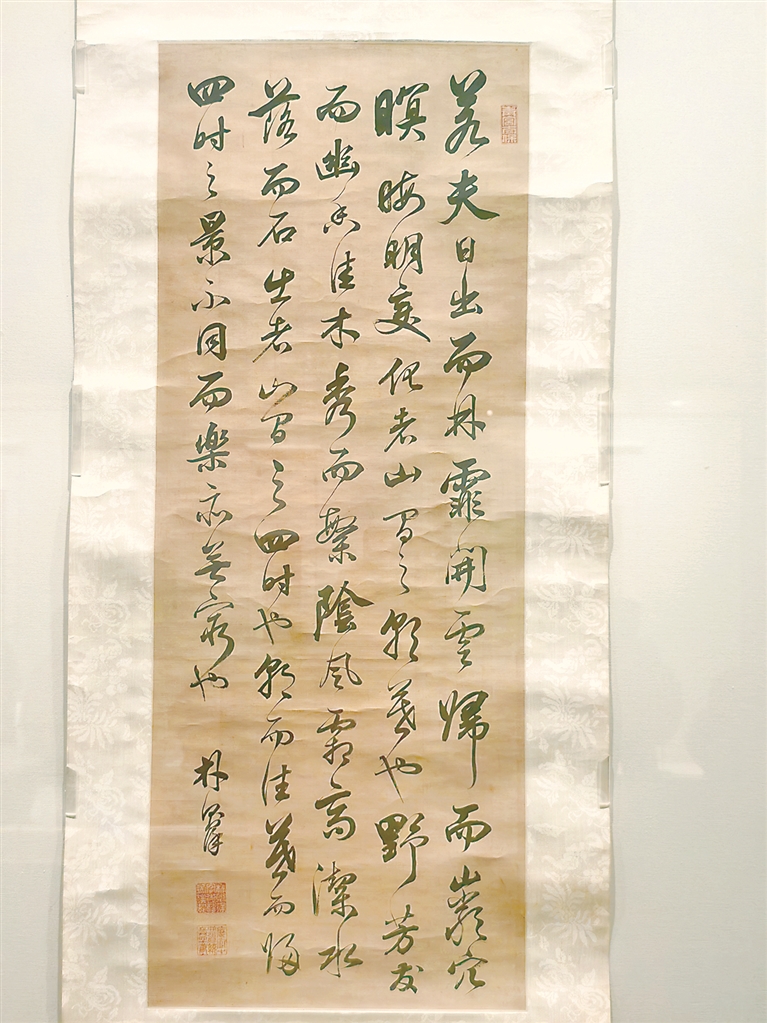 若夫日出而林霏開雲歸而巖穴
暝晦明變化者山間之朝暮也野芳發
而幽香佳木秀而繁陰風霜高潔水
落而石出者山間之四時也朝而往暮而歸
四時之景不同而樂亦無窮也